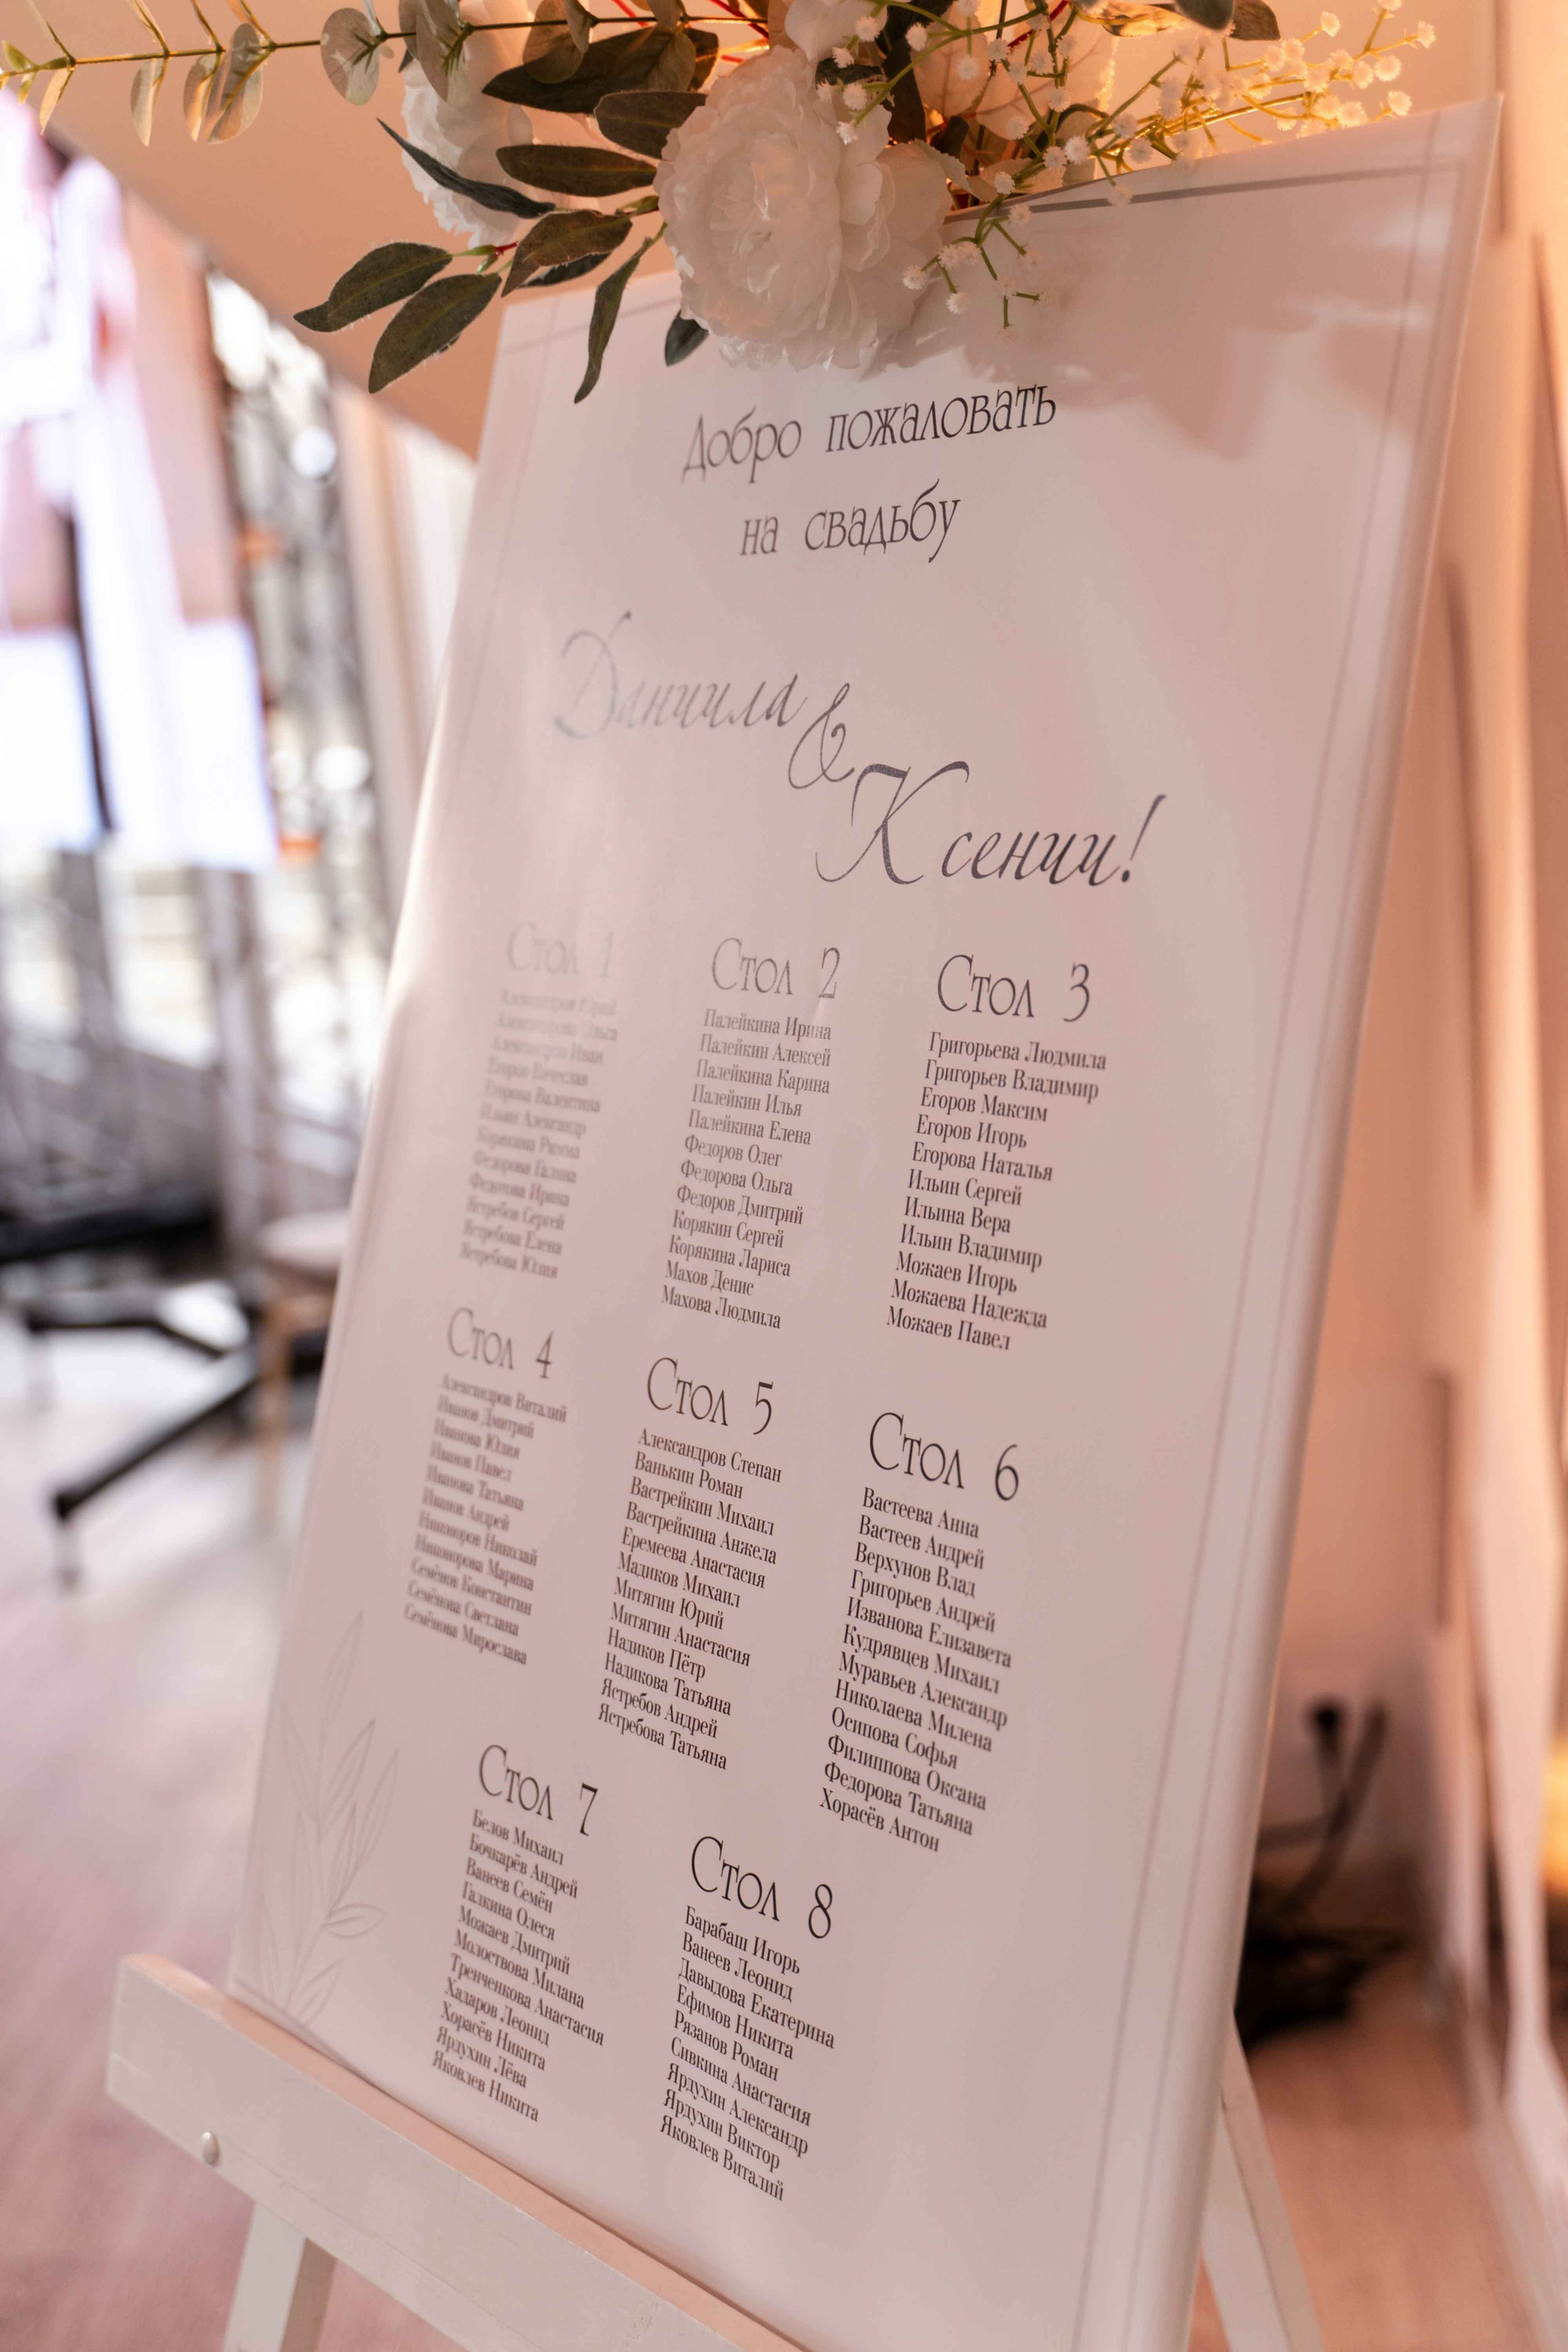 Добро пожаловать
на свадьбу
Даниила
&
Ксении!
Стол 1
Александров Юрий
Александрова Ольга
Александров Иван
Егоров Вячеслав
Егорова Валентина
Ильин Александр
Корякина Римма
Федорова Галина
Федотова Ирина
Ястребов Сергей
Ястребова Елена
Ястребова Юлия
Стол 2
Палейкина Ирина
Палейкин Алексей
Палейкина Карина
Палейкин Илья
Палейкина Елена
Федоров Олег
Федорова Ольга
Федоров Дмитрий
Корякин Сергей
Корякина Лариса
Махов Денис
Махова Людмила
Стол 3
Григорьева Людмила
Григорьев Владимир
Егоров Максим
Егоров Игорь
Егорова Наталья
Ильин Сергей
Ильина Вера
Ильин Владимир
Можаев Игорь
Можаева Надежда
Можаев Павел
Стол 4
Александров Виталий
Иванов Дмитрий
Иванова Юлия
Иванов Павел
Иванова Татьяна
Иванов Андрей
Никоноров Николай
Никонорова Марина
Семёнов Константин
Семёнова Светлана
Семёнова Мирослава
Стол 5
Александров Степан
Ванькин Роман
Вастрейкин Михаил
Вастрейкина Анжела
Еремеева Анастасия
Мадиков Михаил
Митягин Юрий
Митягин Анастасия
Надиков Пётр
Надикова Татьяна
Ястребов Андрей
Ястребова Татьяна
Стол 6
Вастеева Анна
Вастеев Андрей
Верхунов Влад
Григорьев Андрей
Изванова Елизавета
Кудрявцев Михаил
Муравьев Александр
Николаева Милена
Осипова Софья
Филиппова Оксана
Федорова Татьяна
Хорасёв Антон
Стол 7
Белов Михаил
Бочкарёв Андрей
Ванеев Семён
Галкина Олеся
Можаев Дмитрий
Молоствова Милана
Тренченкова Анастасия
Хадаров Леонид
Хорасёв Никита
Ярдухин Лёва
Яковлев Никита
Стол 8
Барабаш Игорь
Ванеев Леонид
Давыдова Екатерина
Ефимов Никита
Рязанов Роман
Сивкина Анастасия
Ярдухин Александр
Ярдухин Виктор
Яковлев Виталий